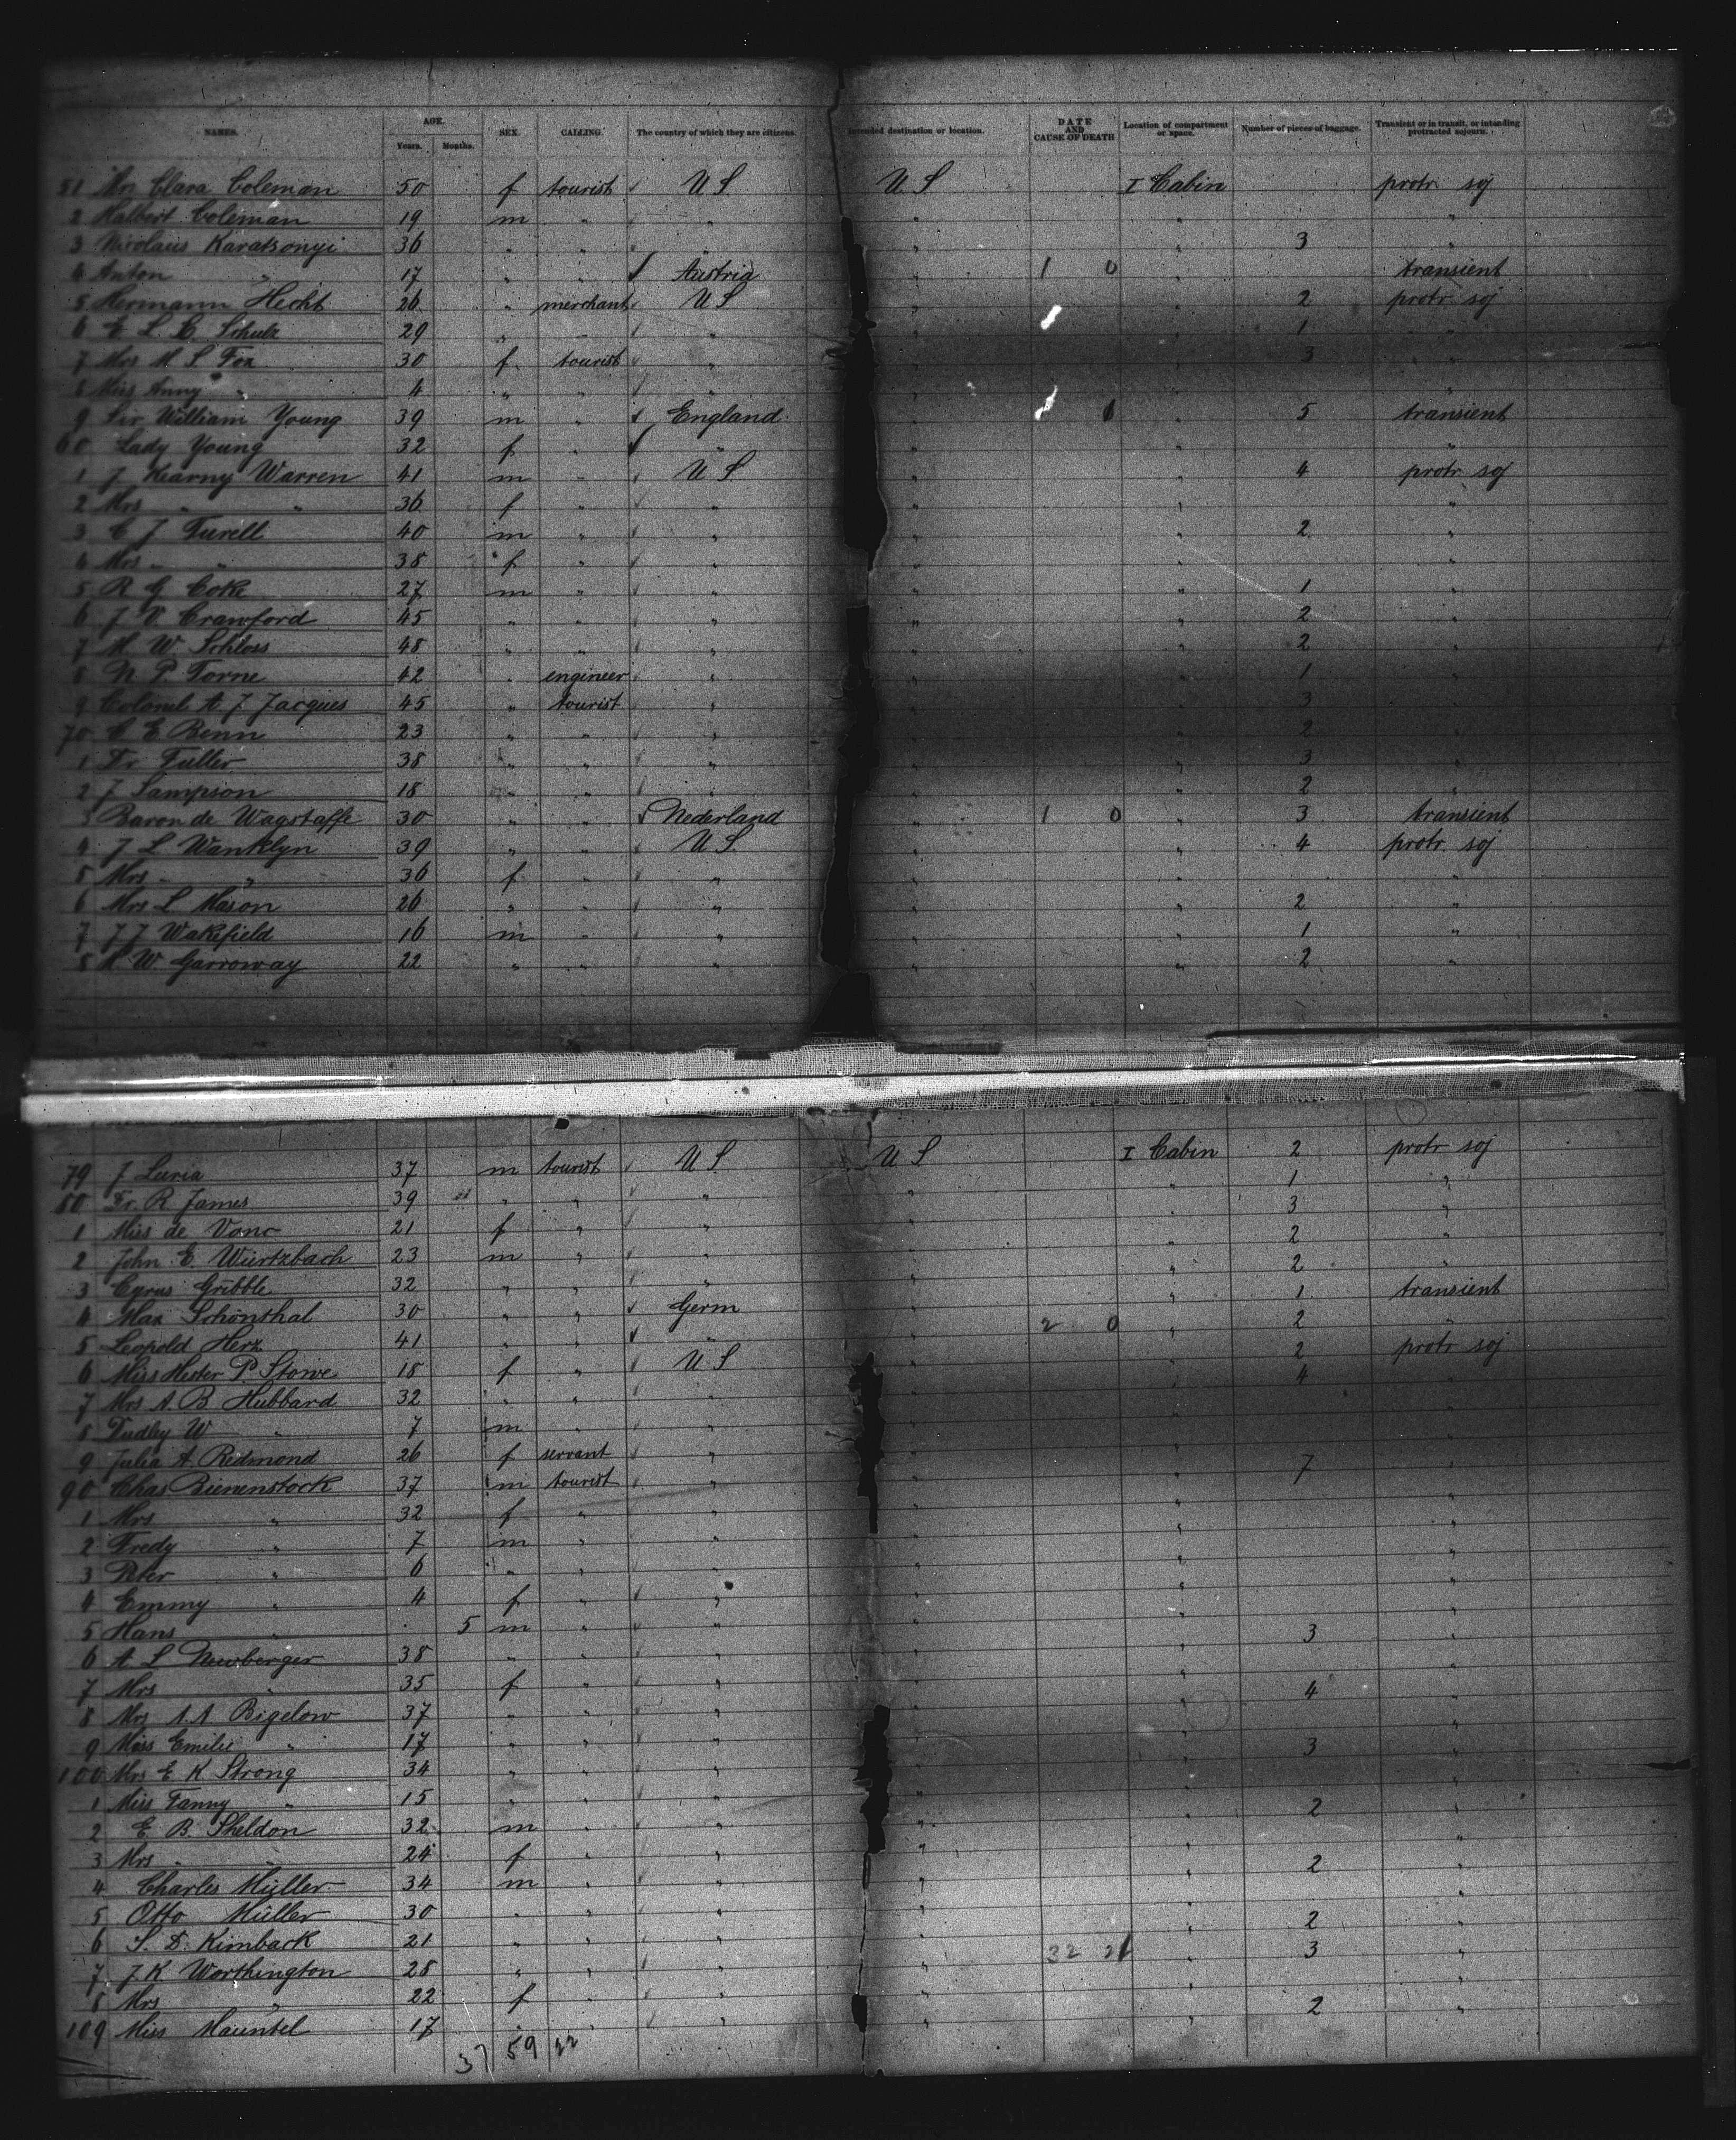 NAMES. AGE. Years. Months. SEX. CALLING. The country of which they are citizens. Intended destination or location. DATE AND CAUSE OF DEATH Location of compartment or space. Number of pieces of baggage. Transient or in transit, or intending protracted sojourn.
51 Mrs Clara Coleman 50 f tourist U S U S I Cabin protr soj
2 Halbert Coleman 19 m " " " " "
3 Nicolaus Karatsonyi 36 " " " " " 3 "
4 Anton " 17 " " Austria " 1 0 " transient
5 Hermann Hecht 26 " merchant U S " " 2 protr soj
6 E L L Schulz 29 " " " " " 1 "
7 Mrs M S Fox 30 f tourist " " " 3 "
8 Miss Anny " 4 " " " " " "
9 Sir William Young 39 m " England " " 5 transient
60 Lady Young 32 f " " " " "
1 J Kearny Warren 41 m " U S " " 4 protr soj
2 Mrs " " 36 f " " " " "
3 C J Turell 40 m " " " " 2 "
4 Mrs " " 38 f " " " " "
5 R G Coke 27 m " " " " 1 "
6 J V Crawford 45 " " " " " 2 "
7 M W Schloss 48 " " " " " 2 "
8 N P Torne 42 " engineer " " " 1 "
9 Colonel A J Jacques 45 " tourist " " " 3 "
70 C E Benn 23 " " " " " 2 "
1 Dr Fuller 38 " " " " " 3 "
2 J Sampson 18 " " " " " 2 "
3 Baron de Wagstaffe 30 " " Nederland " 1 0 " 3 transient
4 J L Wanklyn 39 " " U S. " " 4 protr soj
5 Mrs " " 36 f " " " " "
6 Mrs L Mason 26 " " " " " 2 "
7 J J Wakefield 16 m " " " " 1 "
8 H W. Garroway 22 " " " " " 2 "
79 J Luria 37 m tourist U S U S I Cabin 2 protr soj
80 Dr. R James 39 " " " " " 1 "
1 Miss de Vonc 21 f " " " " 3 "
2 John E Würtzbach 23 m " " " " 2 "
3 Cyrus Gribble 32 " " " " " 2 "
4 Max Schönthal 30 " " Germ " " 1 transient
5 Leopold Herz 41 " " " " 2 0 " 2 "
6 Miss Hester P Stowe 18 f " U S " " 2 protr soj
7 Mrs A B Hubbard 32 " " " " " 4 "
8 Dudley W " 7 m " " " " "
9 Julia A Redmond 26 f servant " " " "
90 Chas Bienenstock 37 m tourist " " " 7 "
1 Mrs " 32 f " " " " "
2 Fredy " 7 m " " " " "
3 Peter " 6 " " " " " "
4 Emmy " 4 f " " " " "
5 Hans " 5 m " " " " "
6 A L Newberger 38 " " " " " 3 "
7 Mrs " 35 f " " " " "
8 Mrs A A Bigelow 37 " " " " " 4 "
9 Miss Emilie " 17 " " " " " "
100 Mrs E K Strong 34 " " " " " 3 "
1 Miss Fanny " 15 " " " " " "
2 E B Sheldon 32 m " " " " 2 "
3 Mrs " " 24 f " " " " "
4 Charles Müller 34 m " " " " 2 "
5 Otto Müller 30 " " " " " "
6 S. D. Kimbark 21 " " " " " 2 "
7 J K Worthington 28 " " " " 32 21 " 3 "
8 Mrs " 22 f " " " " "
109 Miss Mauntel 17 " " " " " 2 "
37 59 22